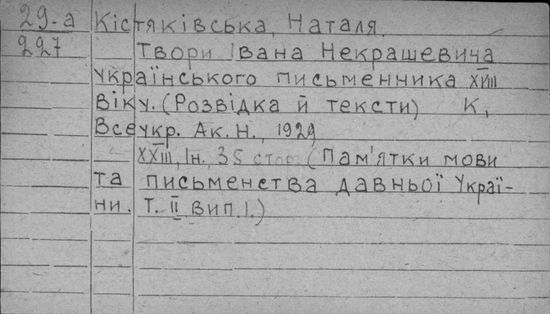 29-а Кістяківська, Наталя.
227 Твори Івана Некрашевича
українського письменника XVIII
віку. (Розвідка й тексти) К,
Всеукр. Ак. Н., 1929
XXIII, Ін. 35 стор. (Пам'ятки мови
та письменства давньої Украї-
ни. Т. II вип. 1.)